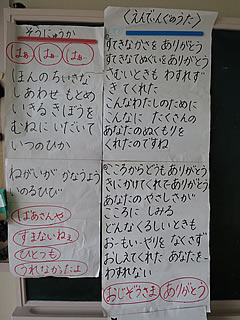 そうにゅうか
はぁ はぁ はぁ
ほんのちいさな
しあわせ もとめ
いきる きぼうを
むねに いだいて
いつのひか
ねがいが かなうよう
いのるひび
ばあさんや
すまないねぇ
ひとつも
うれなかったよ
〈えんでぃんぐのうた〉
すてきなかさを ありがとう
すてきなてぬぐいを ありがとう
さむいときも わすれず
きてくれた
こんなわたしのために
こんなに たくさんの
あなたのぬくもりを
くれたのですね
こころからどうもありがとう
きにかけてくれてありがとう
あなたの やさしさが
こころに しみる
どんなくるしいときも
お・もいやりを なくさず
おしえてくれた あなたを
わすれない
おじぞうさま ありがとう